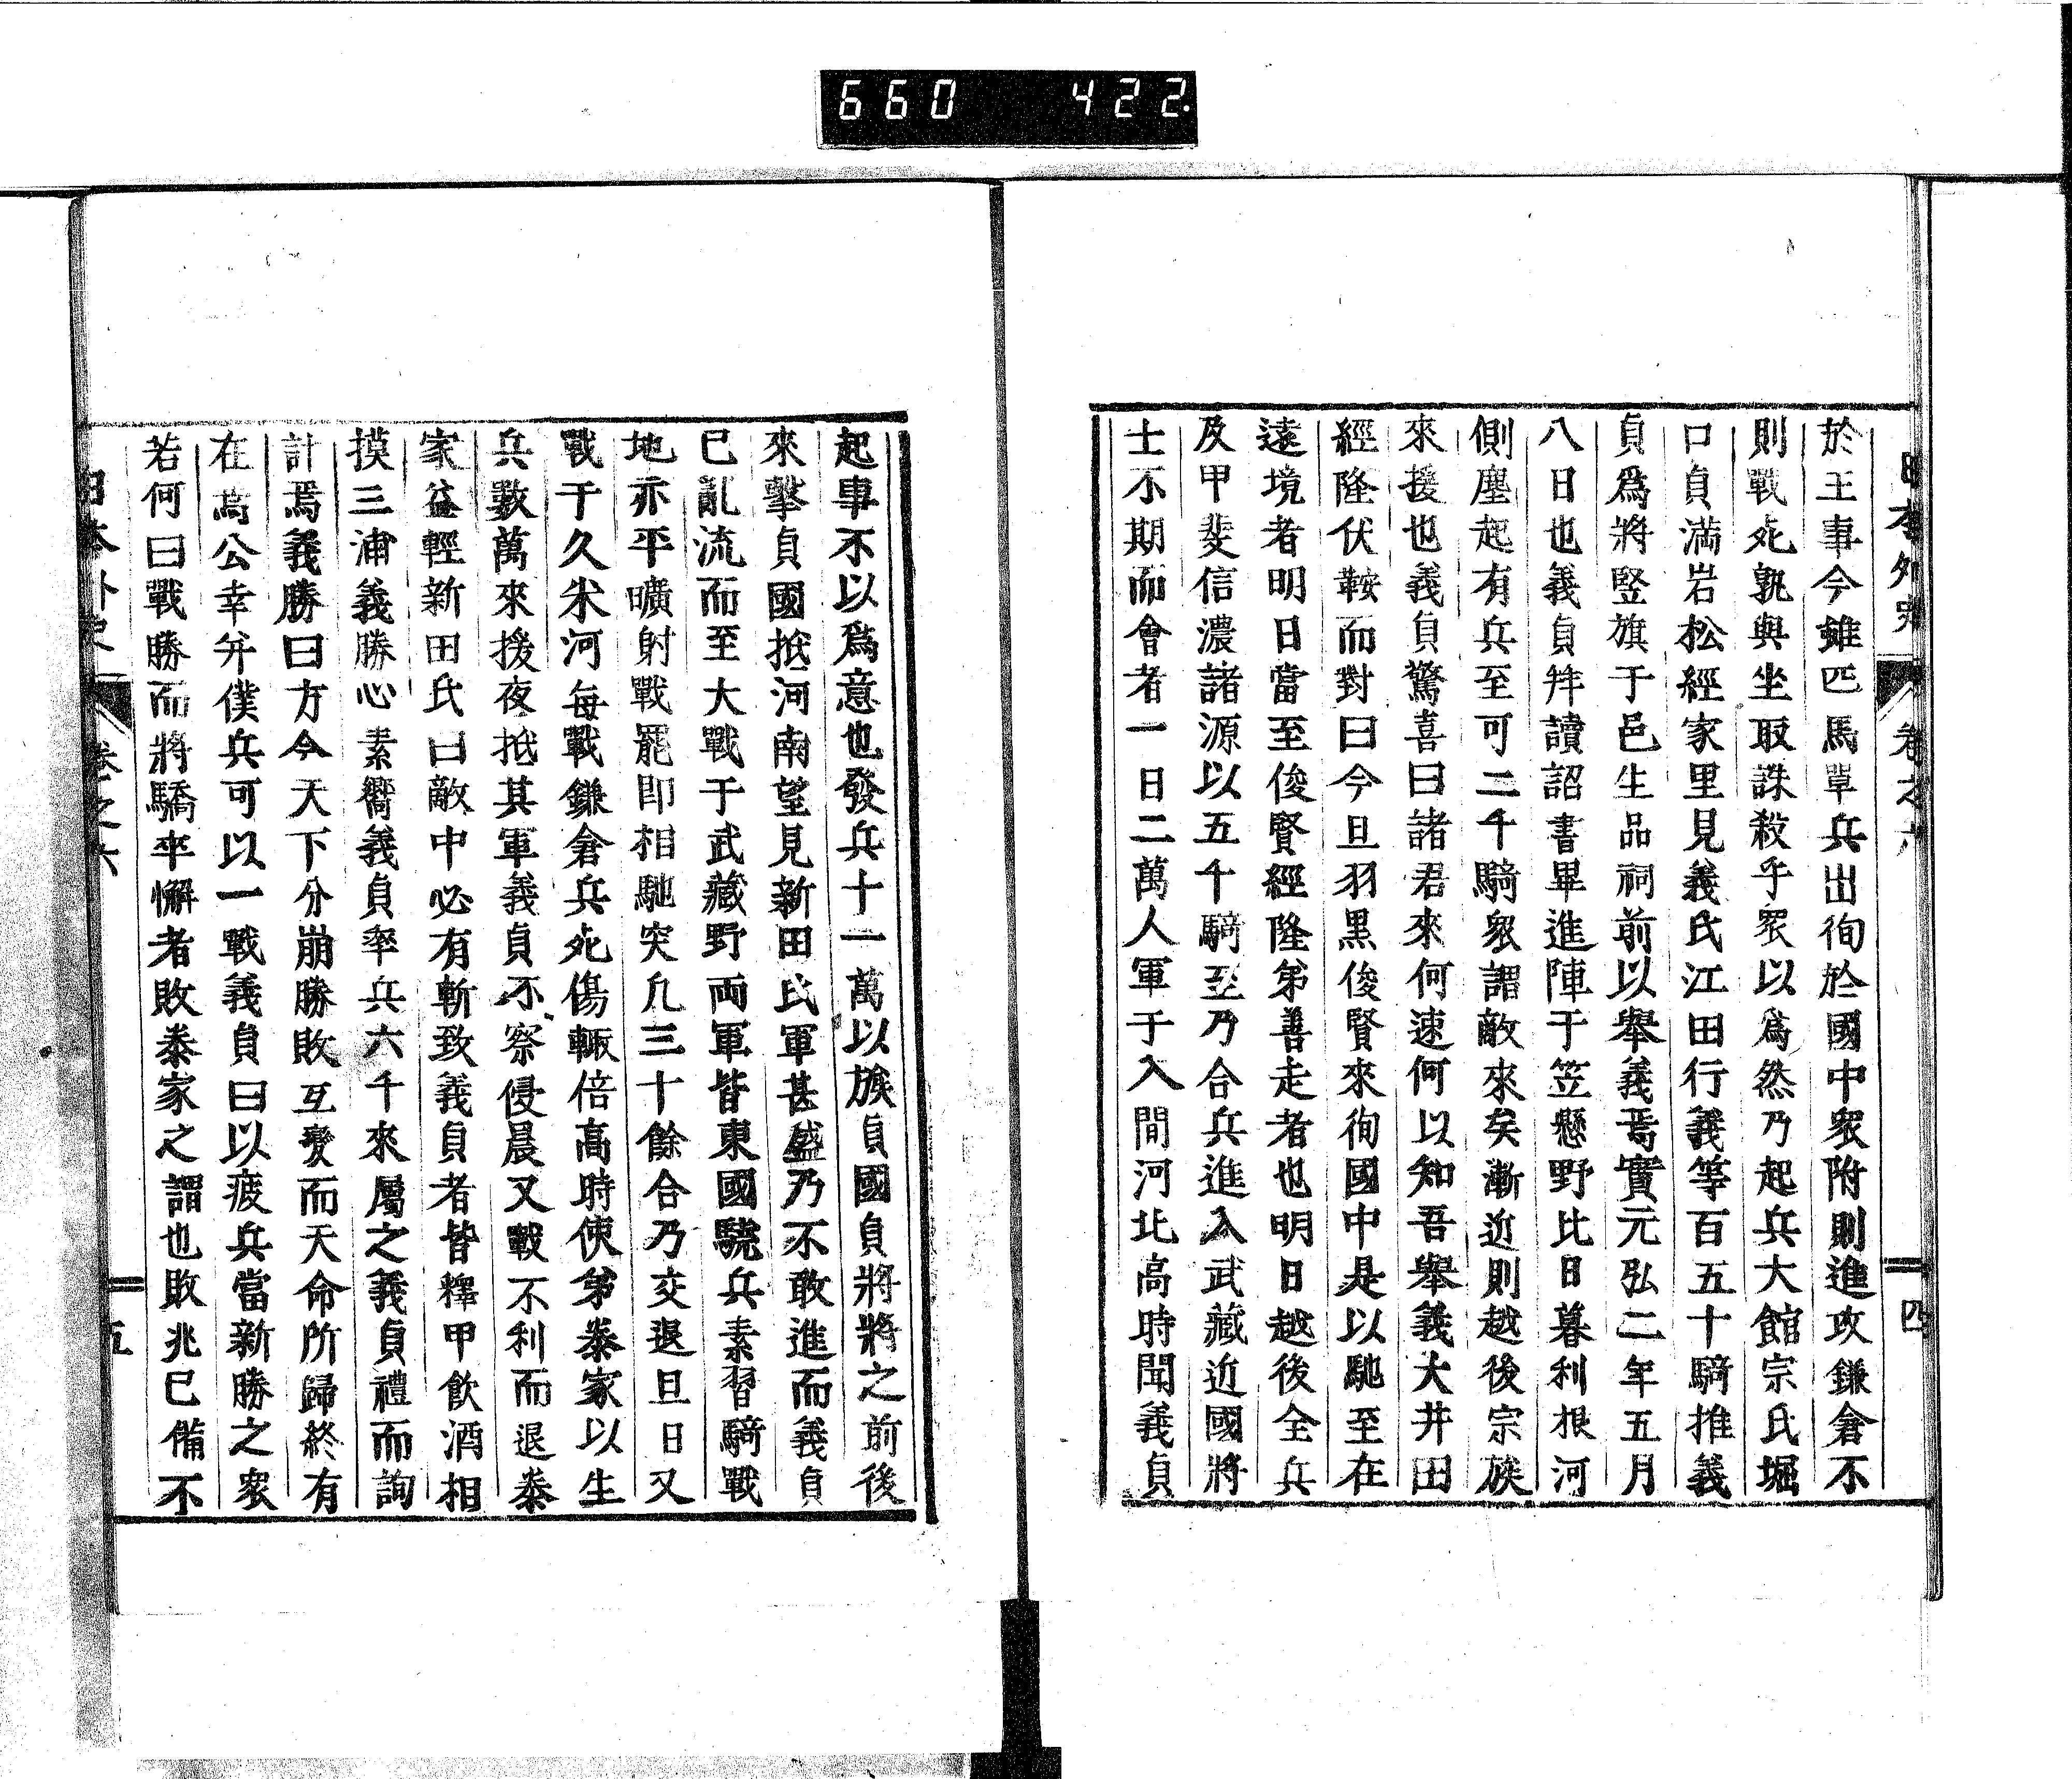 660 422.
日本外史 卷之六 四
於王事今雖匹馬單兵出徇於國中衆附則進攻鎌倉不
則戰死孰與坐取誅殺乎衆以爲然乃起兵大館宗氏堀
口貞満岩松經家里見義氏江田行義等百五十騎推義
貞爲將竪旗于邑生品祠前以舉義焉實元弘二年五月
八日也義貞拜讀詔書畢進陣于笠懸野比日暮利根河
側塵起有兵至可二千騎衆謂敵來矣漸近則越後宗族
來援也義貞驚喜曰諸君來何速何以知吾舉義大井田
經隆伏鞍而對曰今旦羽黒俊賢來徇國中是以馳至在
遠境者明日當至俊賢經隆弟善走者也明日越後全兵
及甲斐信濃諸源以五千騎至乃合兵進入武藏近國將
士不期而會者一日二萬人軍于入間河北高時聞義貞
起事不以爲意也發兵十一萬以族貞國貞將將之前後
來擊貞國抵河南望見新田氏軍甚盛乃不敢進而義貞
已亂流而至大戰于武藏野両軍皆東國驍兵素習騎戰
地亦平曠射戰罷即相馳突凢三十餘合乃交退旦日又
戰于久米河每戰鎌倉兵死傷輙倍高時使弟泰家以生
兵數萬來援夜抵其軍義貞不察侵晨又戰不利而退泰
家益輕新田氏曰敵中必有斬致義貞者皆釋甲飲酒相
摸三浦義勝心素嚮義貞率兵六千來屬之義貞禮而詢
計焉義勝曰方今天下分崩勝敗互變而天命所歸終有
在焉公幸并僕兵可以一戰義貞曰以疲兵當新勝之衆
若何曰戰勝而將驕卒懈者敗泰家之謂也敗兆已備不
日本外史 卷之六 五